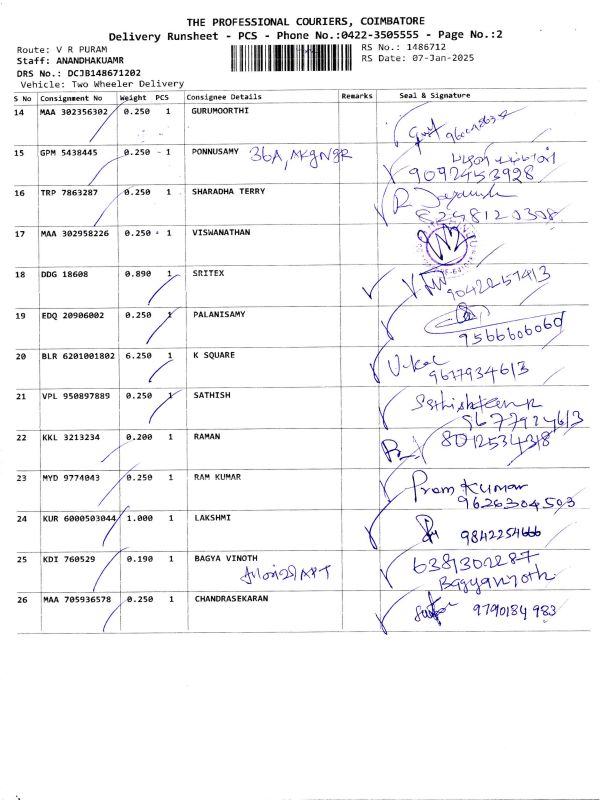 THE PROFESSIONAL COURIERS, COIMBATORE
Delivery Runsheet - PCS - Phone No.:0422-3505555 - Page No.:2
Route: V R PURAM
RS No.: 1486712
Staff: ANANDHAKUAMR
RS Date: 07-Jan-2025
DRS No.: DCJB148671202
Vehicle: Two Wheeler Delivery
S No Consignment No Weight PCS Consignee Details Remarks Seal & Signature
14 MAA 302356302 0.250 1 GURUMOORTHI
15 GPM 5438445 0.250 1 PONNUSAMY 36A, MKgNgR
9092453928
16 TRP 7863287 0.250 1 SHARADHA TERRY
8248120308
17 MAA 302958226 0.250 1 VISWANATHAN
18 DDG 18608 0.890 1 SRITEX
9042257413
19 EDQ 20906002 0.250 1 PALANISAMY
9566606060
20 BLR 6201001802 6.250 1 K SQUARE
9677934613
21 VPL 950897889 0.250 1 SATHISH
9677924613
22 KKL 3213234 0.200 1 RAMAN
8012534318
23 MYD 9774043 0.250 1 RAM KUMAR Pram Kumar
9626304503
24 KUR 6000503044 1.000 1 LAKSHMI
9842254666
25 KDI 760529 0.190 1 BAGYA VINOTH 6381302287
Bagyavinoth
26 MAA 705936578 0.250 1 CHANDRASEKARAN
9790184983